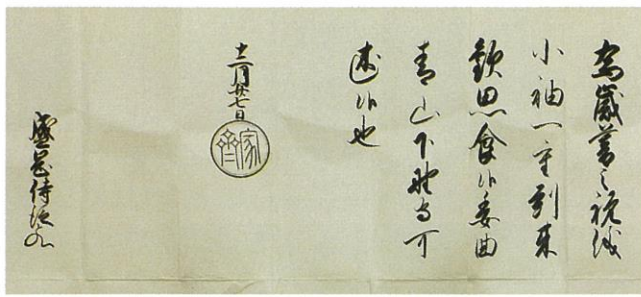 為歳暮之祝儀
小袖一重到来
歓思食候委曲
青山下野守可
述候也
十二月廿七日
家齊
盛岡侍従とのへ